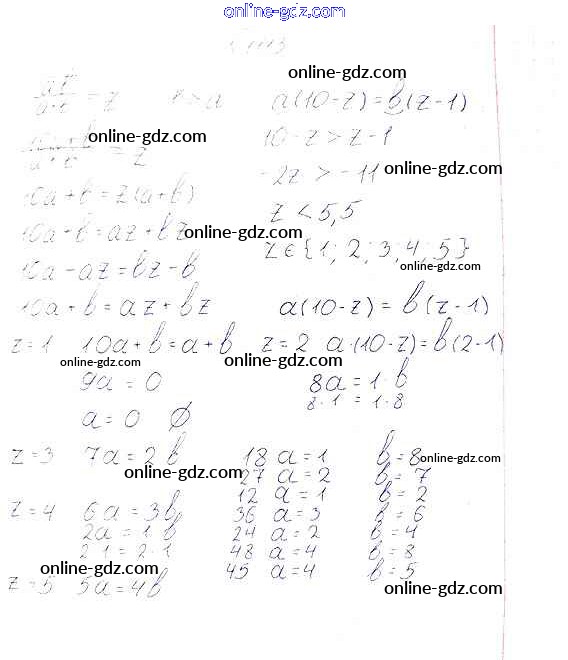 online-gdz.com
online-gdz.com
= z b > a a(10-z) = b(z-1)
online-gdz.com
10-z > z-1
= z
-2z > -11
10a+b = z(a+b)
online-gdz.com
z < 5,5
10a+b = az+bz
online-gdz.com
z ∈ {1; 2; 3; 4; 5}
10a-az = bz-b
online-gdz.com
10a+b = az+bz a(10-z) = b(z-1)
z=1 10a+b = a+b z=2 a·(10-z) = b(2-1)
online-gdz.com online-gdz.com
9a = 0 8a = 1·b
8·1 = 1·8
a = 0 ∅
online-gdz.com
z=3 7a = 2b 18 a=1 b=8
online-gdz.com
27 a=2 b=7
12 a=1 b=2
z=4 6a = 3b 36 a=3 b=6
2a = 1·b 24 a=2 b=4
2·1 = 2·1 48 a=4 b=8
online-gdz.com
45 a=4 b=5
z=5 5a = 4b
online-gdz.com